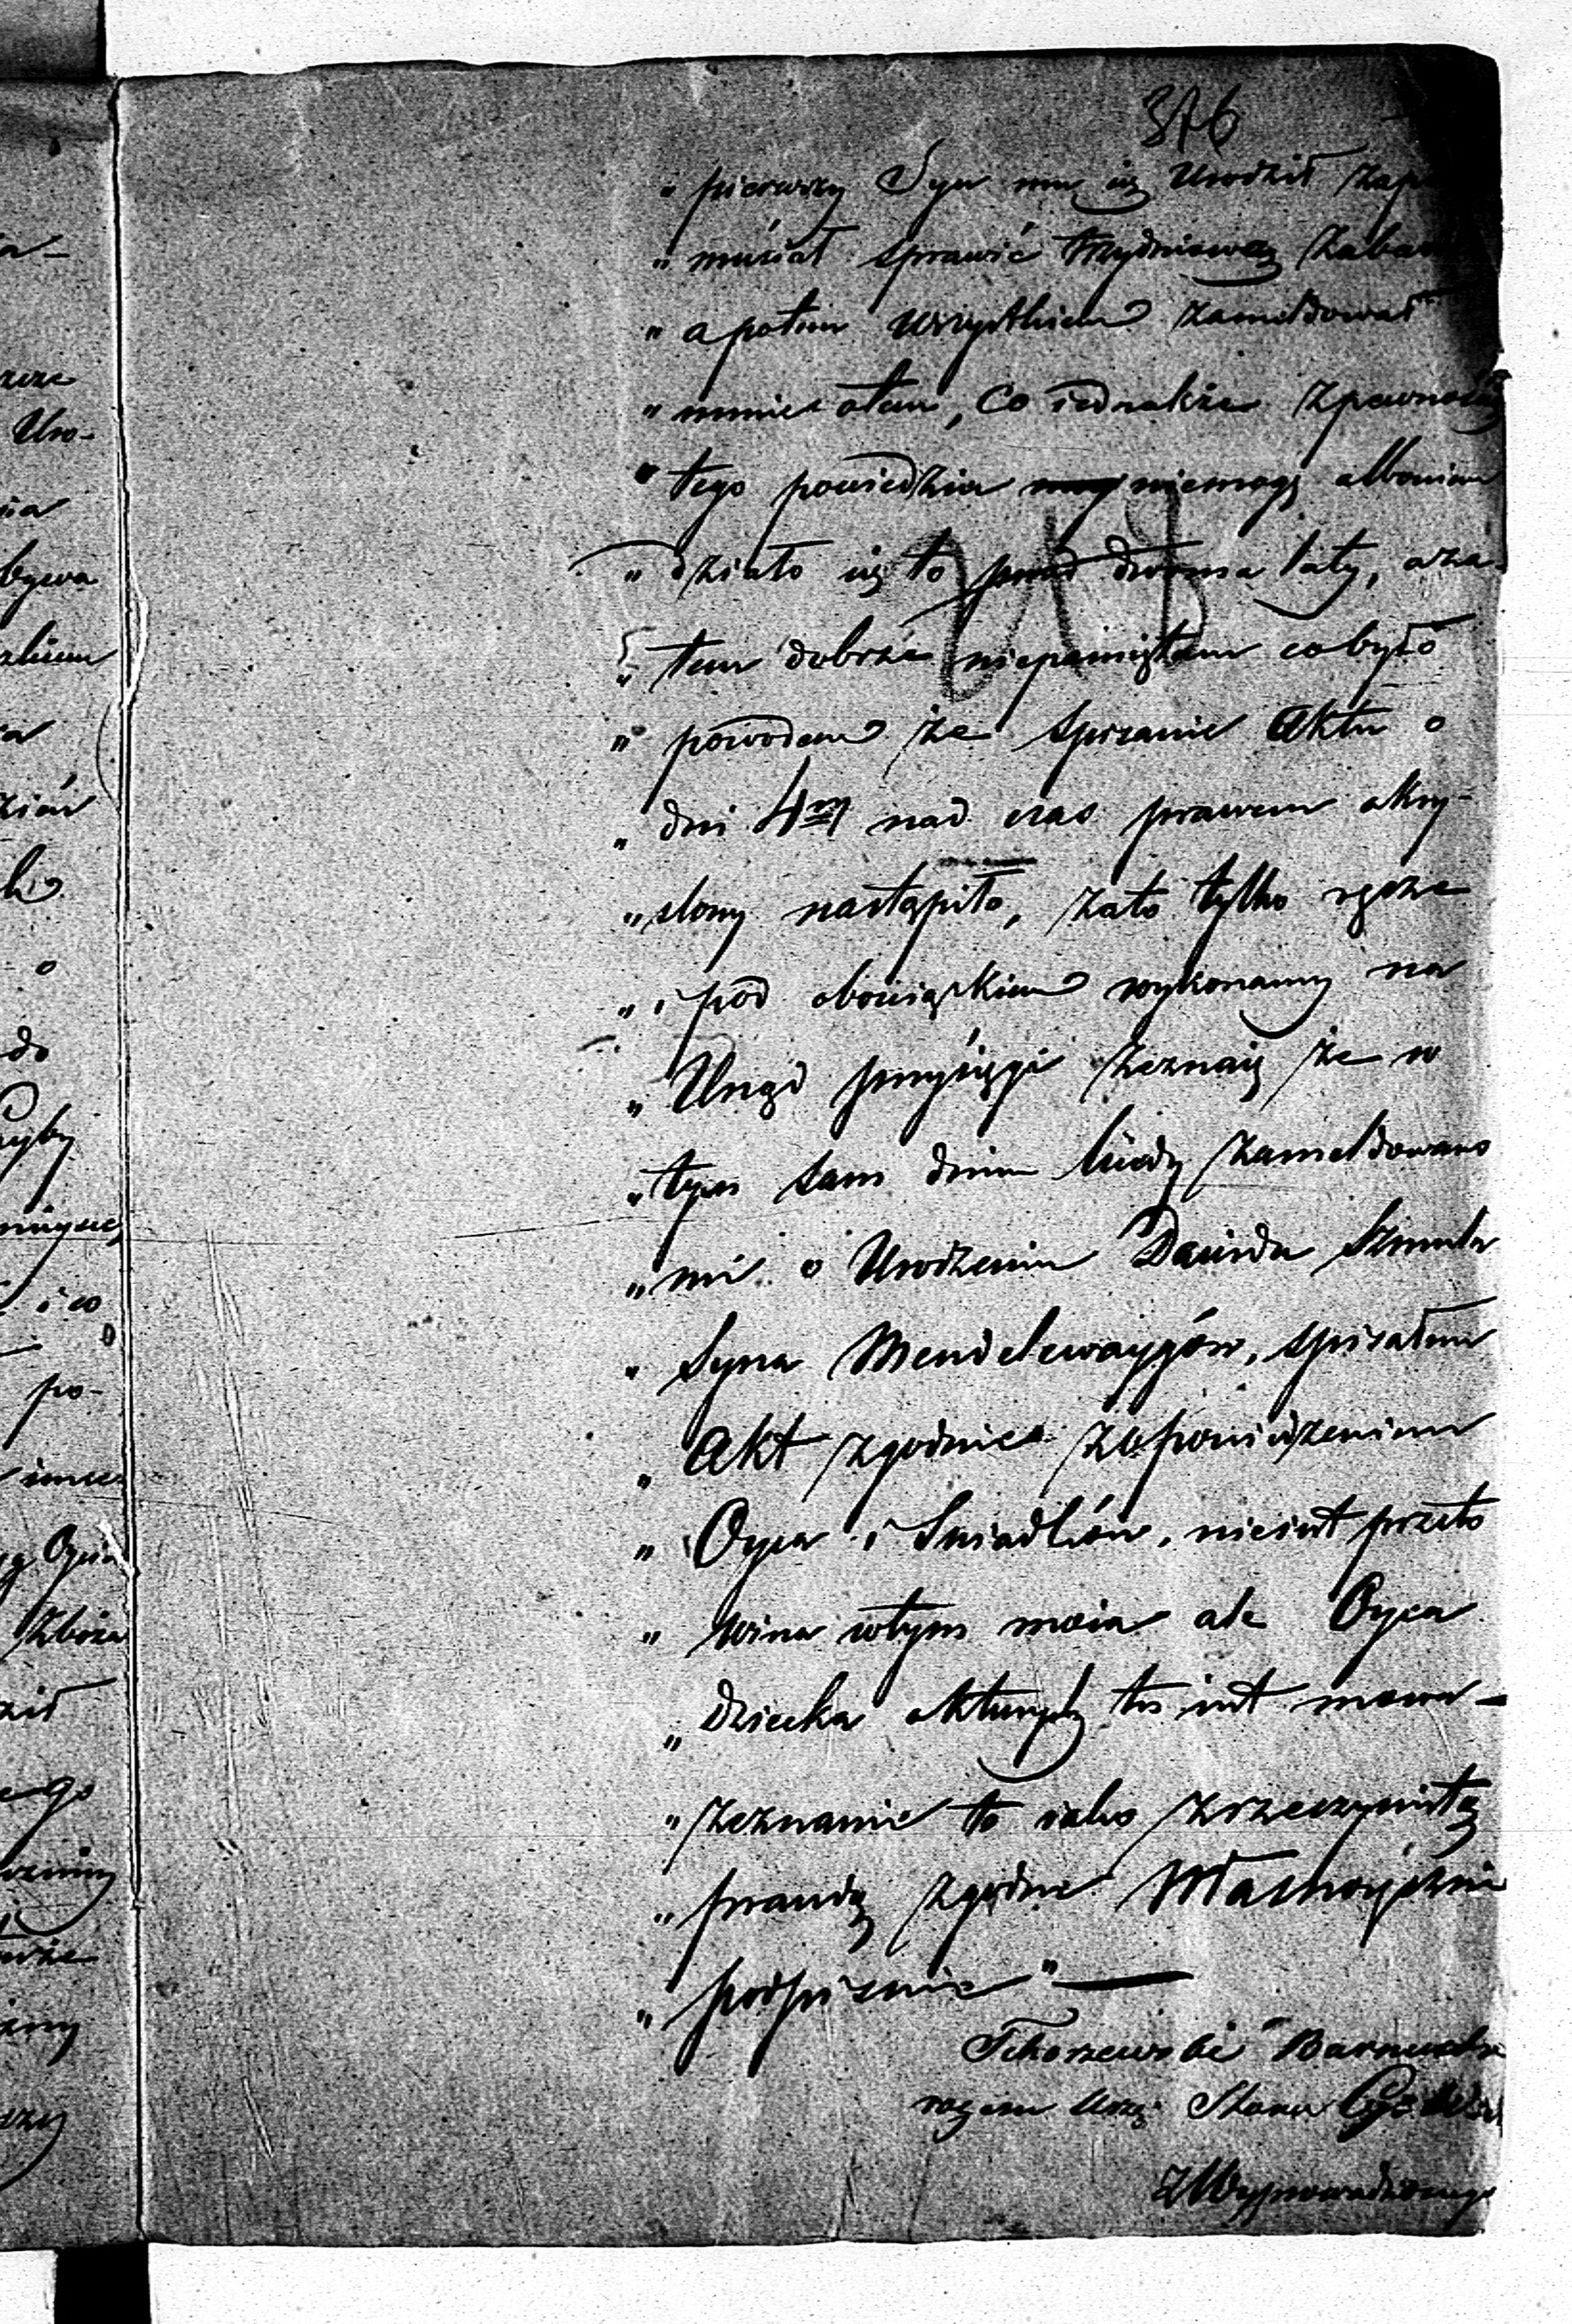 376
„ pierwszy Syn mu się Urodził
„ musiał sprawić trzydniową
„ a potem wszystkiem zameldował
„ mnie otem, Co iednakże zpewnością
„ tego powiedzieć niemogę albowiem
„ działo się to przed dwoma laty, aza
„ tem dobrze niepamiętam cobyło
„ powodem że spisanie Aktu o
„ dni 4ry nad czas prawem okry-
„ slony nastąpiło, zato tylko ręcze
„ i pod obowiązkiem wykonanny na
„ Urząd przysięgi zeznaię że w
„ tym sam dniu kiedy zameldowano
„ mi o Urodzeniu Dawida Szmula
„ Syna Mendelewaygów, spisałem
„ Akt zgodnie zapowiedzeniem
„ Oyca i Swiadków, nieiest przeto
„ wina wtym moia ale Oyca
„ dziecka októrych tu iest mowa –
„ zeznanie to iako zrzeczywistą
„ prawdą zgodne Własnoręcznie
„ podpisuie" —
Tchorzewski
Urzę: Stanu